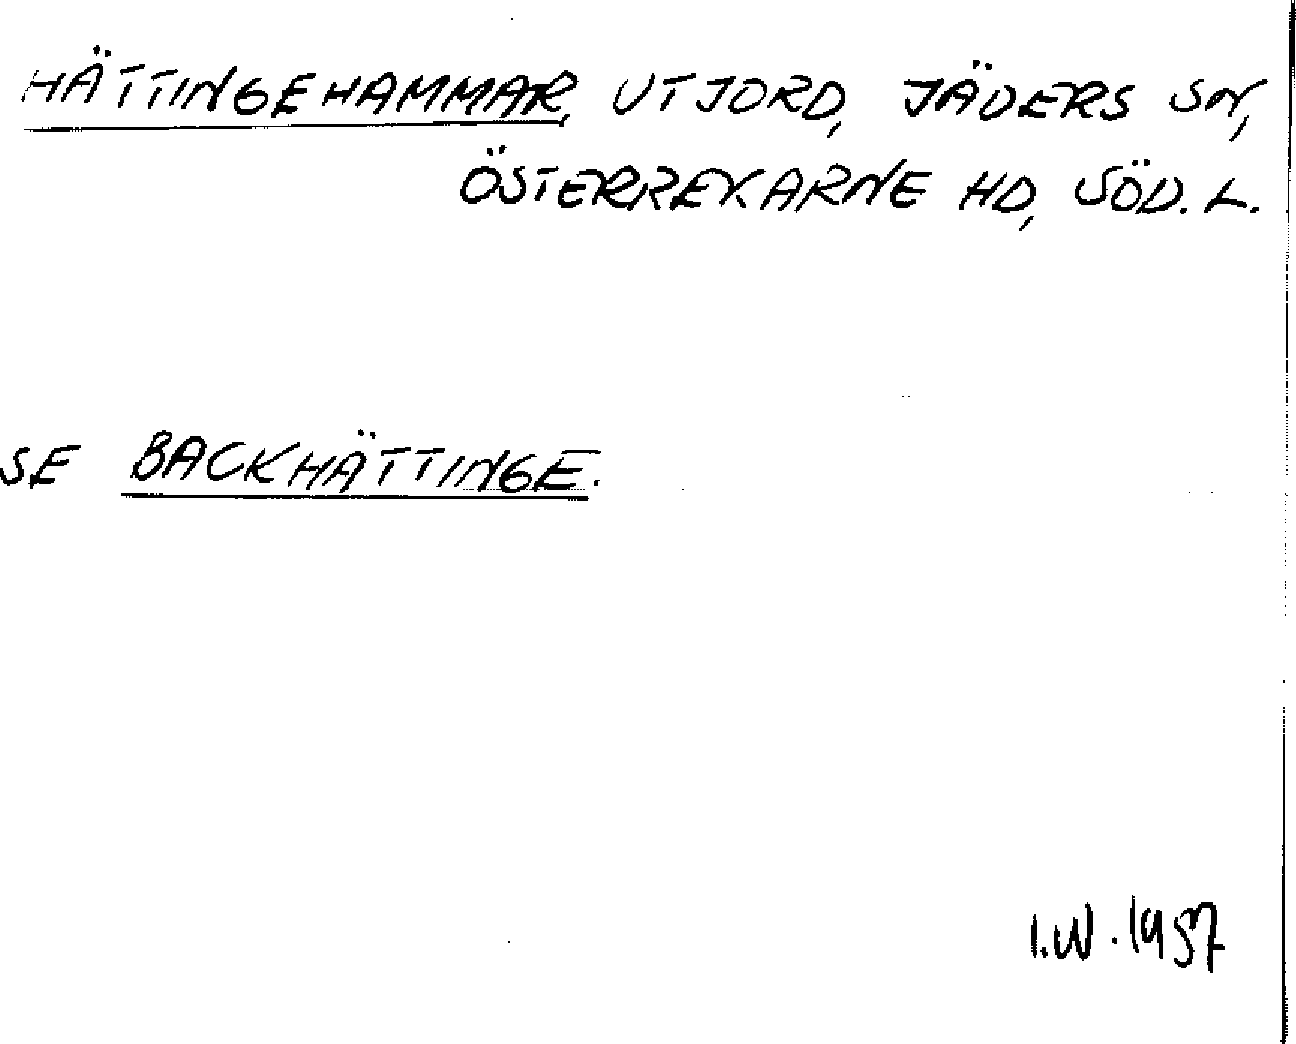 HÄTTINGEHAMMAR, UTJORD, JÄDERS SN,
ÖSTERREKARNE HD, SÖD. L.
SE BACKHÄTTINGE.
I.W. 1957